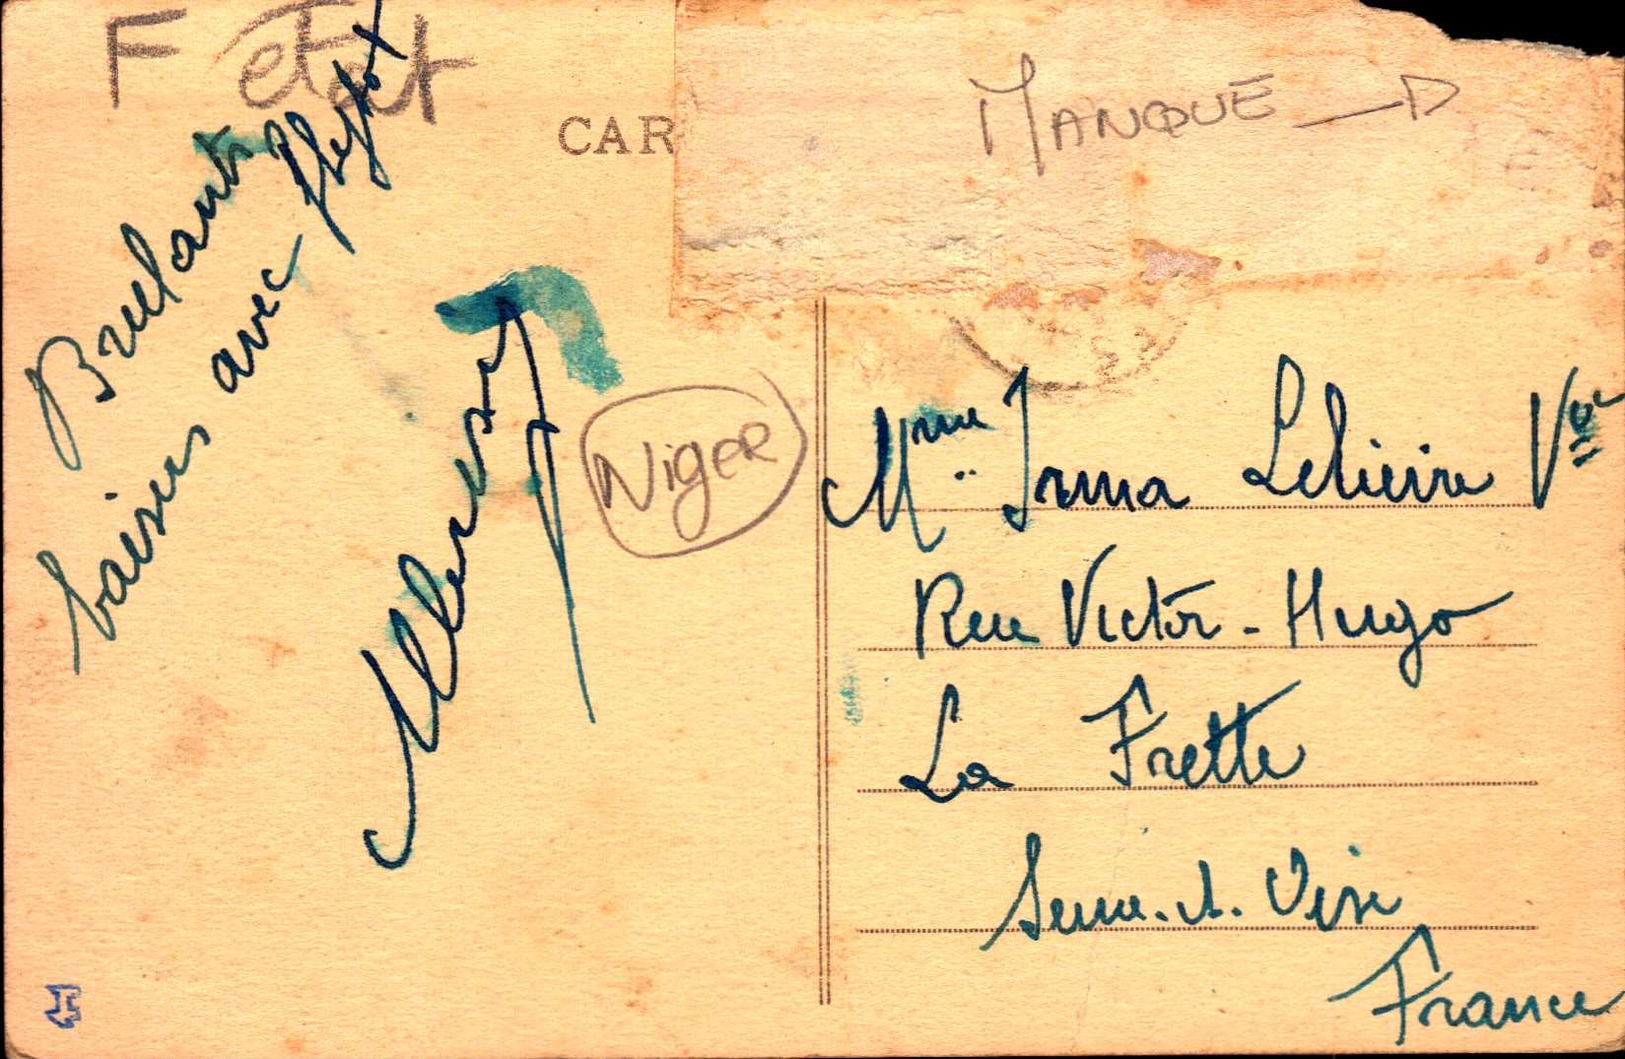 F etat
CAR
MANQUE
Brulants
baisers avec
NIGER
Mme Irma Lelièvre Vve
Rue Victor-Hugo
La Frette
Seine. et. Oise
France